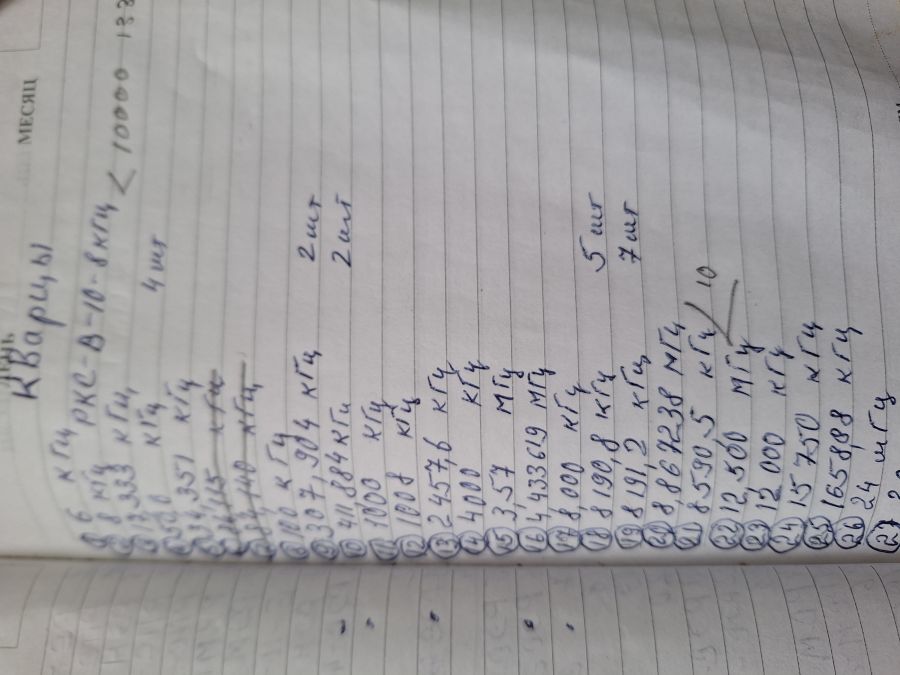 МЕСЯЦ
Кварцы
① 6 кГц
② 8 кГц РКС-В-10-8кГц < 10000
③ 13,333 кГц
кГц 4 шт
,351 кГц
кГц
140 кГц
⑧ 100 кГц
⑨ 307,904 кГц 2 шт
⑩ 411,884 кГц 2 шт
⑪ 1000 кГц
⑫ 1008 кГц
⑬ 2457,6 кГц
⑭ 4000 кГц
⑮ 3,57 МГц
⑯ 4,433619 МГц
⑰ 8,000 кГц
⑱ 8190,8 кГц 5 шт
⑲ 8191,2 кГц 7 шт
⑳ 8,867238 МГц
㉑ 8590,5 кГц < 10
㉒ 12,500 МГц
㉓ 12,000 кГц
㉔ 15 750 кГц
㉕ кГц
㉖ 24 мГц
㉗